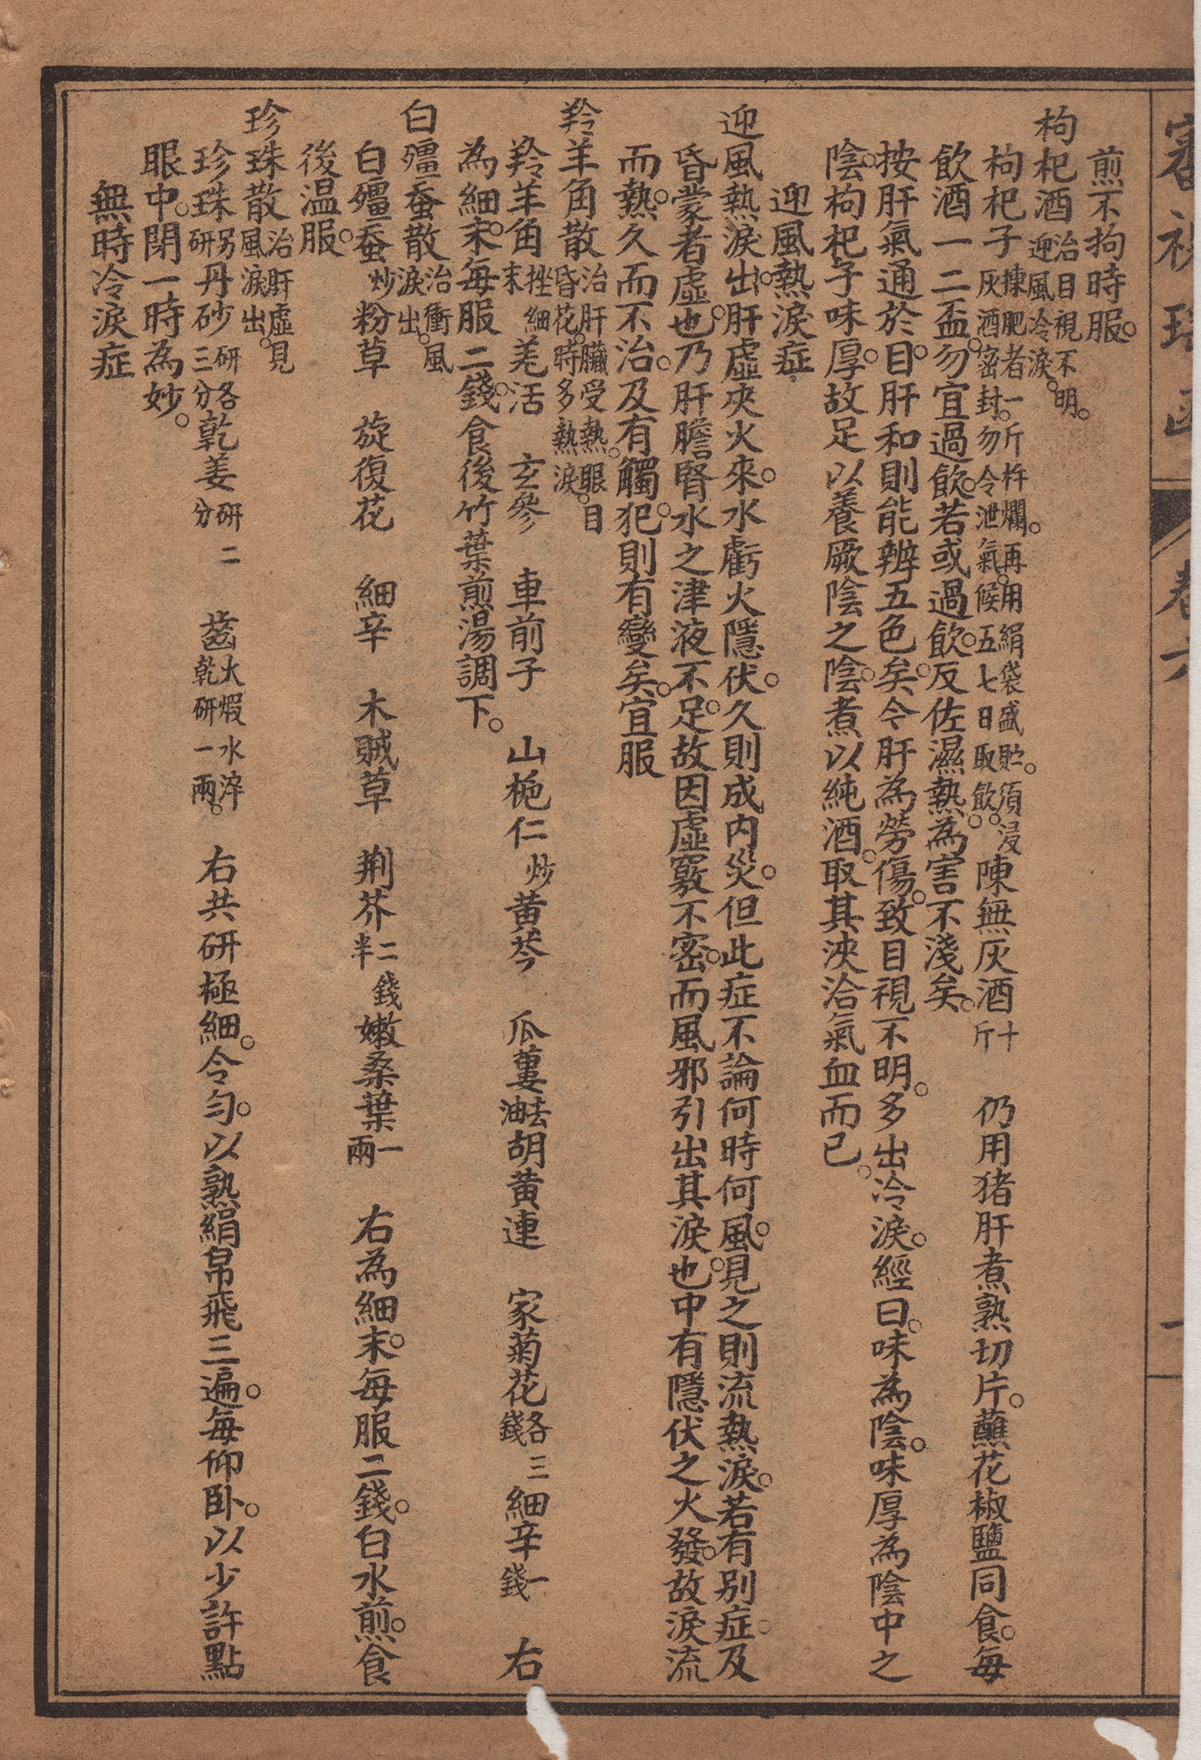 審視瑤函 卷六
煎不拘時服。
枸杞酒 治目視不明。迎風冷淚。
枸杞子 揀肥者一斤杵爛。再用絹袋盛貯。須浸灰酒密封。勿令泄氣。候五七日取飲。 陳無灰酒 十斤 仍用猪肝煮熟切片。蘸花椒鹽同食。每
飲酒一二盃。勿宜過飲。若或過飲。反佐濕熱為害不淺矣。
按肝氣通於目。肝和則能辨五色矣。今肝為勞傷。致目視不明。多出冷淚。經曰。味為陰。味厚為陰中之
陰。枸杞子味厚。故足以養厥陰之陰。煮以純酒。取其浹洽氣血而已。
迎風熱淚症
迎風熱淚出。肝虛夾火來。水虧火隱伏。久則成內災。但此症不論何時何風。見之則流熱淚。若有別症。及
昏蒙者虛也。乃肝膽腎水之津液不足。故因虛竅不密。而風邪引出其淚也。中有隱伏之火發。故淚流
而熱。久而不治。及有觸犯。則有變矣。宜服
羚羊角散 治肝臟受熱。眼目昏花。時多熱淚。
羚羊角 挫細末 羌活 玄參 車前子 山梔仁 炒 黃芩 瓜蔞 去油 胡黃連 家菊花 各三錢 細辛 一錢 右
為細末。每服二錢。食後竹葉煎湯調下。
白殭蚕散 治衝風淚出。
白殭蚕 炒 粉草 旋復花 細辛 木賊草 荆芥 二錢半 嫩桑葉 一兩 右為細末。每服二錢。白水煎。食
後温服。
珍珠散 治肝虛見風淚出。
珍珠 另研 丹砂 研各三分 乾姜 研二分 葘 火煅水淬乾研一兩。 右共研極細。令勻。以熟絹帛飛三遍。每仰卧。以少許點
眼中。閉一時為妙。
無時冷淚症